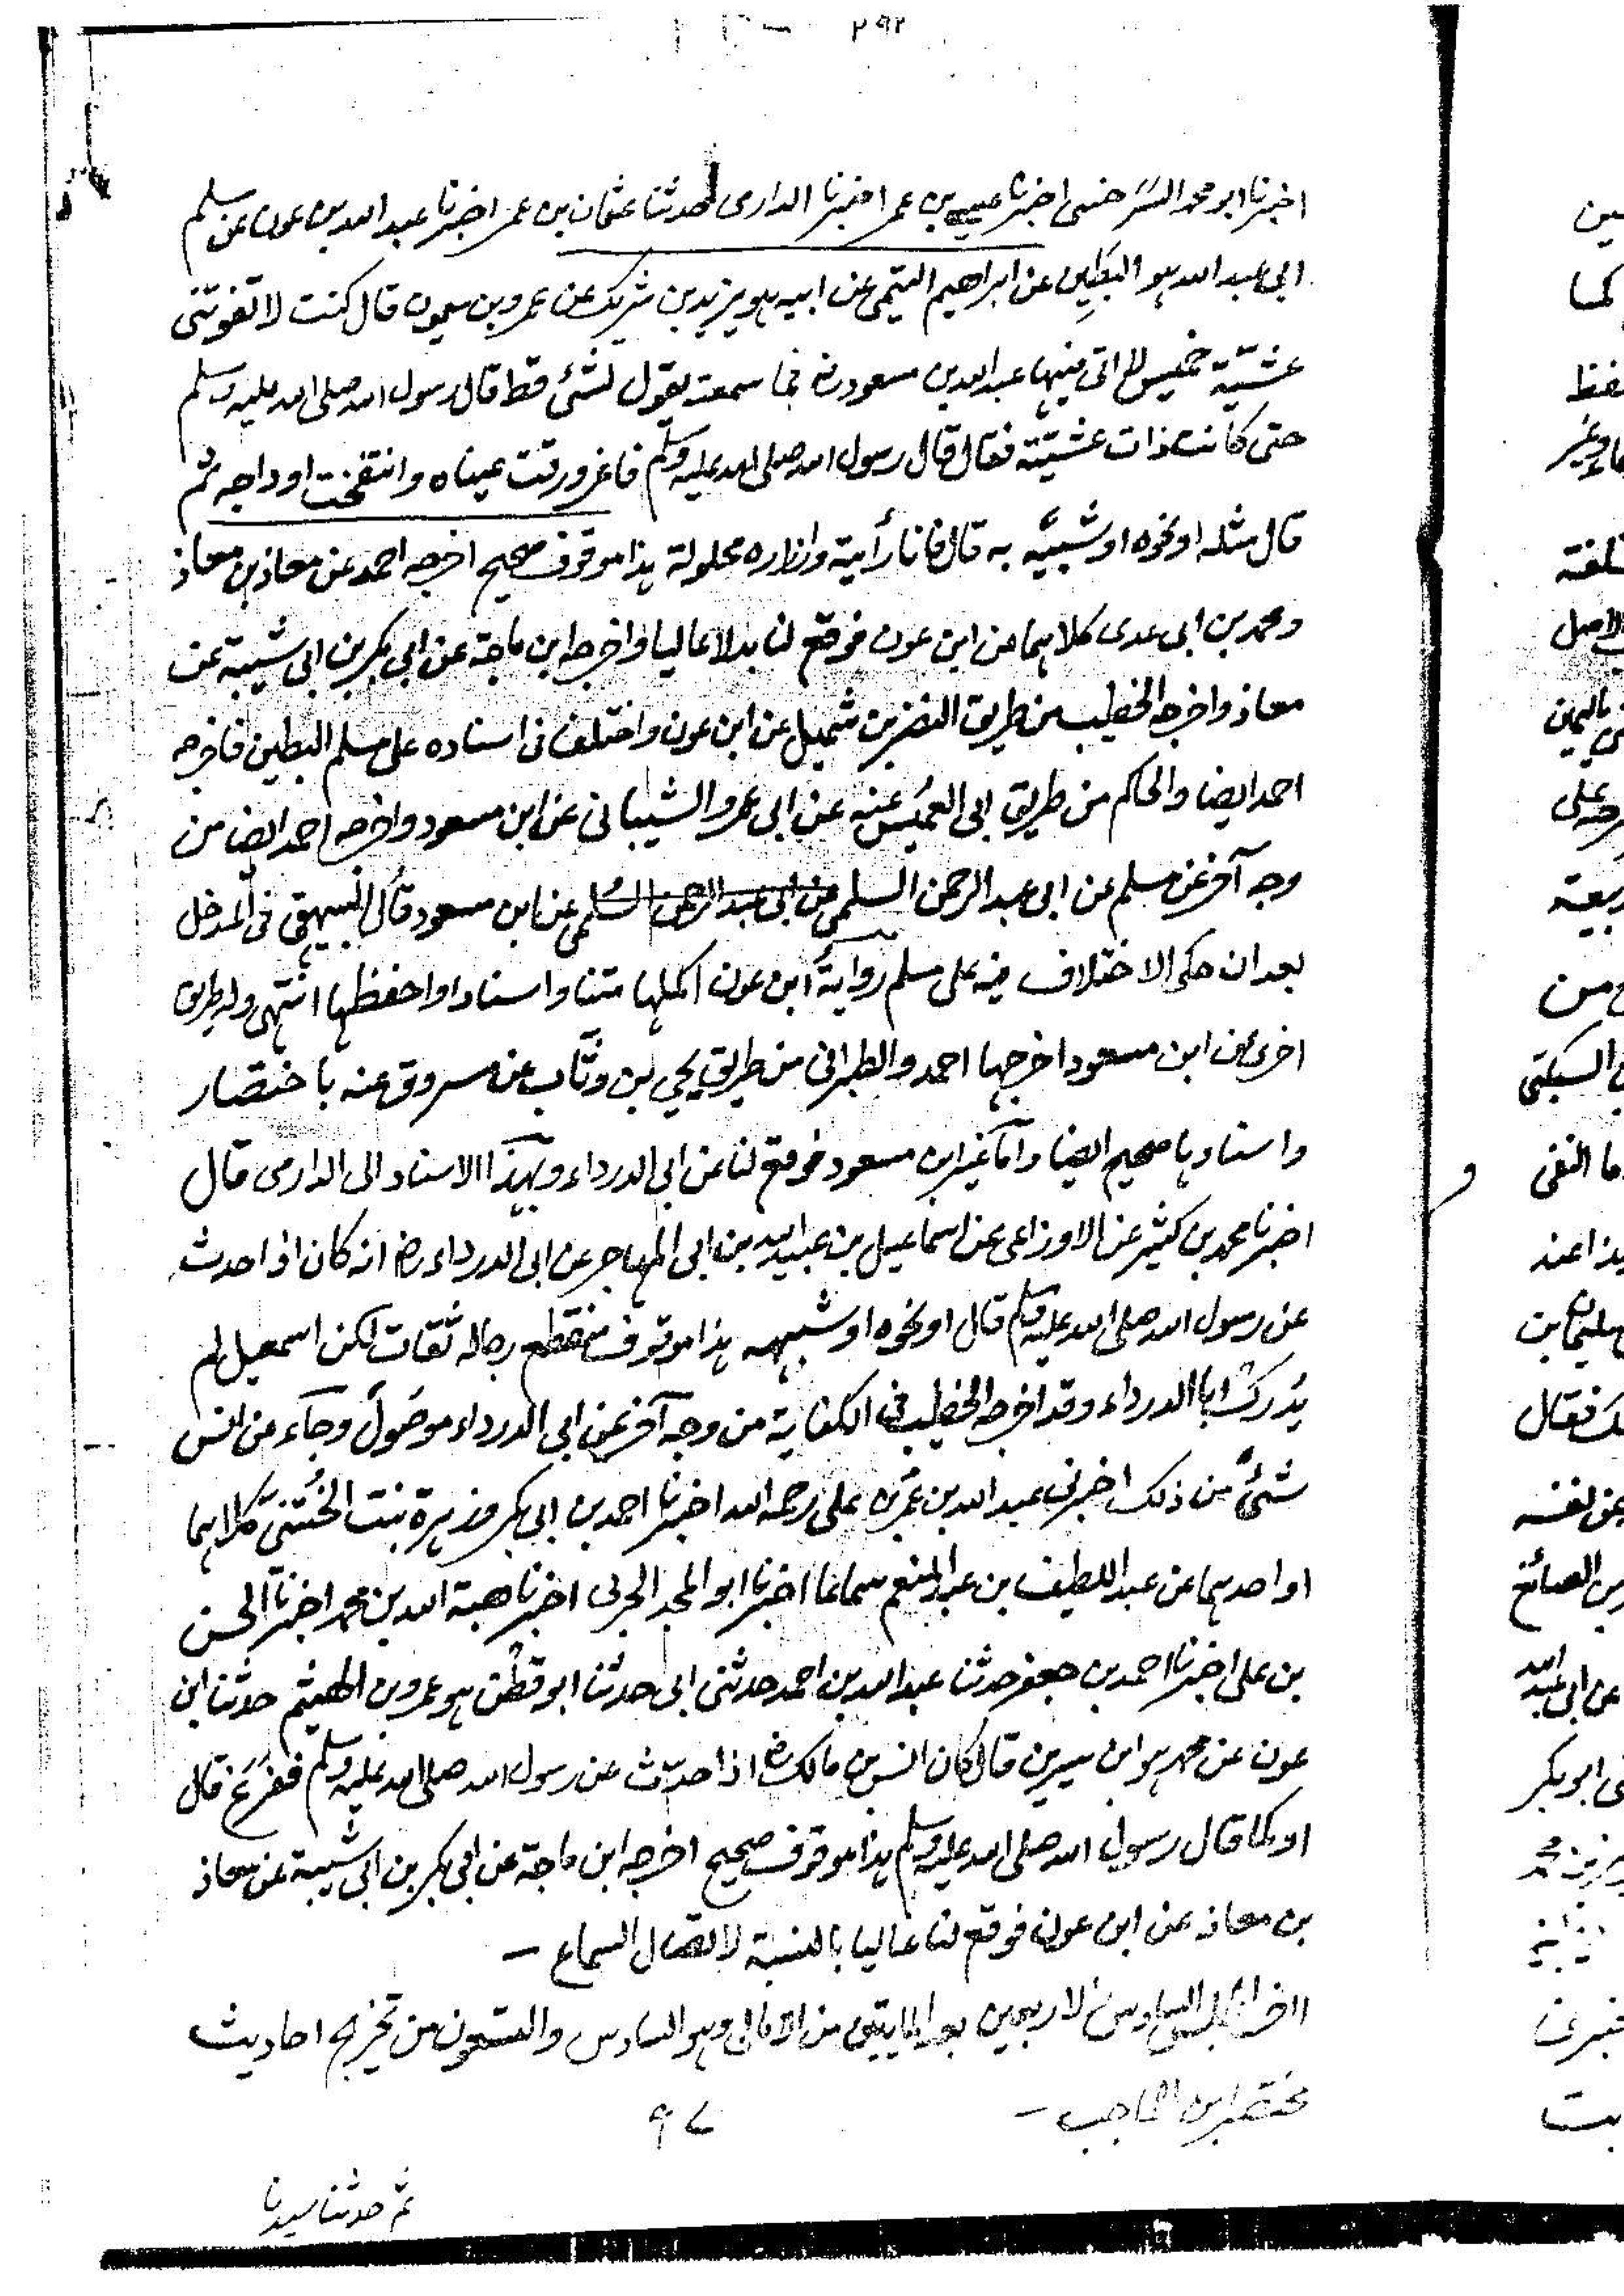 ٢٩٢
اخبرنا ابو محمد السرخسى اخبرنا عيسى بن عمر اخبرنا الدارى حدثنا عثمان بن عمر اخبرنا عبد الله بن عون عن مسلم
ابى عبد الله هو البطين عن ابراهيم التيمى عن ابيه هو يزيد بن شريك عن عمرو بن ميمون قال كنت لا تفوتنى
عشية خميس الا اتى فيها عبد الله بن مسعود رض فما سمعته يقول لشئ قط قال رسول الله صلى الله عليه وسلم
حتى كانت ذات عشية فقال قال رسول الله صلى الله عليه وسلم فاغرورقت عيناه وانتفخت اوداجه ثم
قال مثله او نحوه او شبيه به قال فانا رأيته وازاره محلولة هذا موقوف صحيح اخرجه احمد عن معاذ بن معاذ
ومحمد بن ابى عدى كلاهما عن ابن عون فوقع لنا بدلا عاليا واخرجه ابن ماجة عن ابى بكر بن ابى شيبة عن
معاذ واخرجه الخطيب من طريق النضر بن شميل عن ابن عون واختلف فى اسناده على مسلم البطين فاخرجه
احمد ايضا والحاكم من طريق ابى العميس عنه عن ابى عمرو الشيبانى عن ابن مسعود واخرجه احمد ايضا من
وجه آخر عن مسلم عن ابى عبد الرحمن السلمى عن ابى عبد الرحمن السلمى عن ابن مسعود قال البيهقى فى المدخل
بعد ان حكى الاختلاف فيه على مسلم رواية ابن عون اكملها متنا واسنادا واحفظها انتهى وله طريق
اخرى عن ابن مسعود اخرجها احمد والطبرانى من طريق يحيى بن وثاب عن مسروق عنه باختصار
واسنادها صحيح ايضا واما غير ابن مسعود فوقع لنا عن ابى الدرداء وبهذا الاسناد الى الدارمى قال
اخبرنا محمد بن كثير عن الاوزاعى عن اسماعيل بن عبيد الله بن ابى المهاجر عن ابى الدرداء رض انه كان اذا حدث
عن رسول الله صلى الله عليه وسلم قال او نحوه او شبهه هذا موقوف منقطع رجاله ثقات لكن اسمعيل لم
يدرك ابا الدرداء وقد اخرجه الخطيب فى الكفاية من وجه آخر عن ابى الدرداء موصولا وجاء عن انس
شئ من ذلك اخبرنى عبد الله بن عمر بن على رحمه الله اخبرنا احمد بن ابى بكر وزهرة بنت الختنى كلاهما
او احدهما عن عبد اللطيف بن عبد المنعم سماعا اخبرنا ابو المجد الحربى اخبرنا هبة الله بن محمد اخبرنا الحسن
بن على اخبرنا احمد بن جعفر حدثنا عبد الله بن احمد حدثنى ابى حدثنا ابو قطن هو عمرو بن الهيثم حدثنا ابن
عون عن محمد هو ابن سيرين قال كان انس بن مالك رض اذا حدث عن رسول الله صلى الله عليه وسلم ففزع قال
او كما قال رسول الله صلى الله عليه وسلم هذا موقوف صحيح اخرجه ابن ماجة عن ابى بكر بن ابى شيبة عن معاذ
بن معاذ عن ابن عون فوقع لنا عاليا بالنسبة لاتصال السماع –
اخر المجلس السادس الاربعين بعد المايتين من الامالى وهو السادس والتسعون من تخريج احاديث
مختصر ابن الحاجب –
٩٧
ثم حدثنا سيدنا